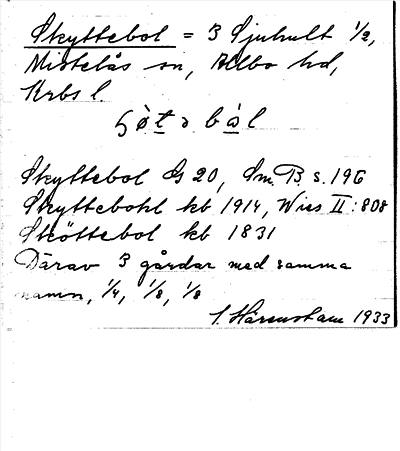 Skyttebol = 3 Sjuhult 1/2,
Mistelås sn, Allbo hd,
Krbs l.
Skyttebol G 20, Sm. B. s. 196
Skyttebohl kb 1914, Wies II: 808
Sköttebol kb 1831
Därav 3 gårdar med samma
namn, 1/4, 1/8, 1/8
S. Härenstam 1933